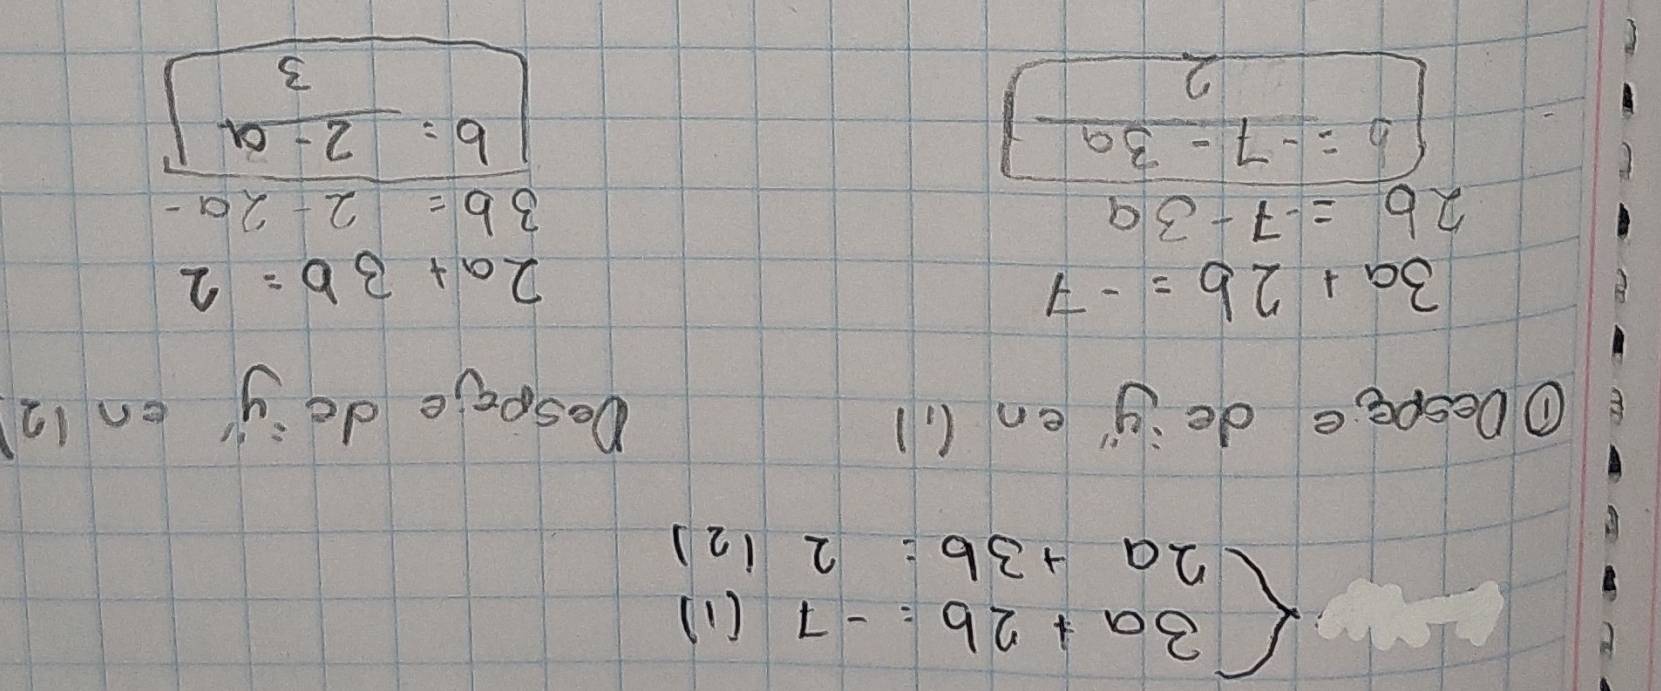 3a + 2b = -7 (1)
2a + 3b = 2 (2)
① Despeje de "y" en (1)
Despeje de "y" en (2)
3a + 2b = -7
2b = -7 - 3a
b = -7 - 3a
2
2a + 3b = 2
3b = 2 - 2a -
b = 2 - a
3